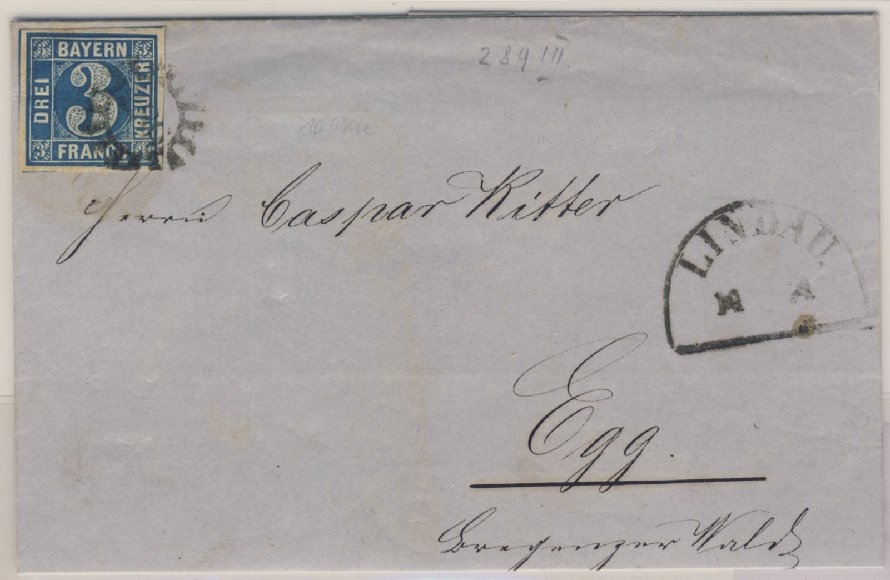 289 III.
BAYERN
DREI
3
KREUZER
FRANCO
Herrn Caspar Ritter
LINDAU.
Egg.
Bregenzer Wald